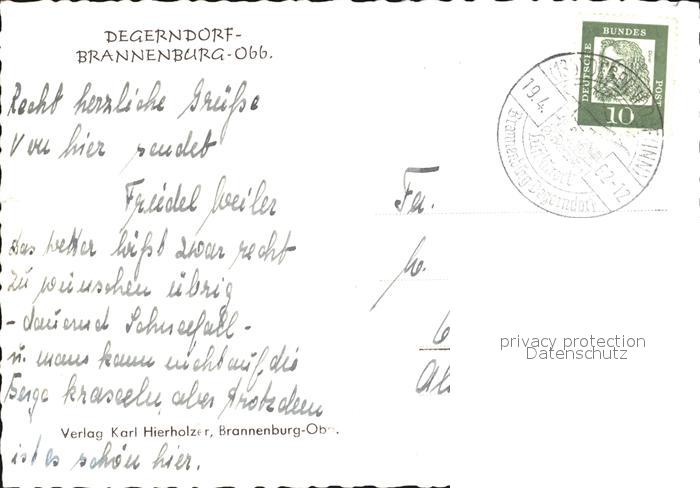 DEGERNDORF-
BRANNENBURG-Obb.
Recht herzliche Grüße
Von hier sendet
Friedel Weiler
das Wetter läßt zwar recht
zu wünschen übrig
- dauernd Schneefall -
u. mans kann nicht auf die
Berge kraxeln, aber trotzdem
ist es schön hier.
Verlag Karl Hierholzer, Brannenburg-Obb.
Fa.
DEUTSCHE BUNDES POST
10
19.4.
62-12
(INN)
Brannenburg-Degerndorf
Luftkurort
privacy protection
Datenschutz